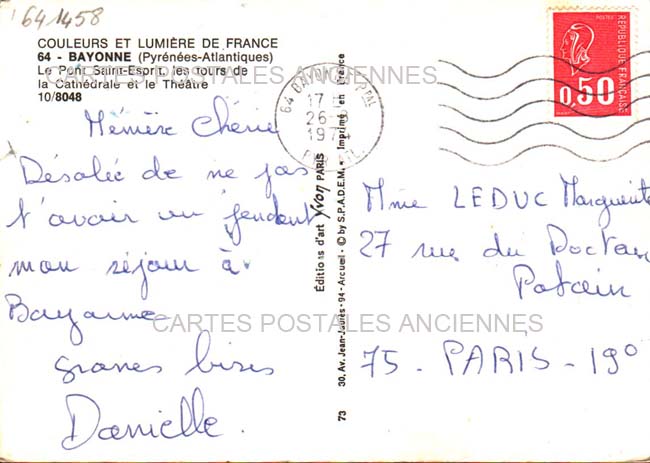 641458
COULEURS ET LUMIÈRE DE FRANCE
64 - BAYONNE (Pyrénées-Atlantiques)
Le Pont Saint-Esprit, les tours de
la Cathédrale et le Théâtre
10/8048
CARTES POSTALES ANCIENNES
Mémère Chérie
Désolée de ne pas
t'avoir vu pendant
mon séjour à
Bayonne
CARTES POSTALES ANCIENNES
grosses bises
Danielle.
Éditions d'art Yvon PARIS
73 30, Av. Jean-Jaurès - 94 - Arcueil - © by S.P.A.D.E.M. - Imprimé en France
64 BAYONNE PPAL
17 H
26 -
197
POSTES
REPUBLIQUE FRANÇAISE
0,50
Mme LEDUC Marguerite
27 rue du Docteur
Potain
75. PARIS - 19°